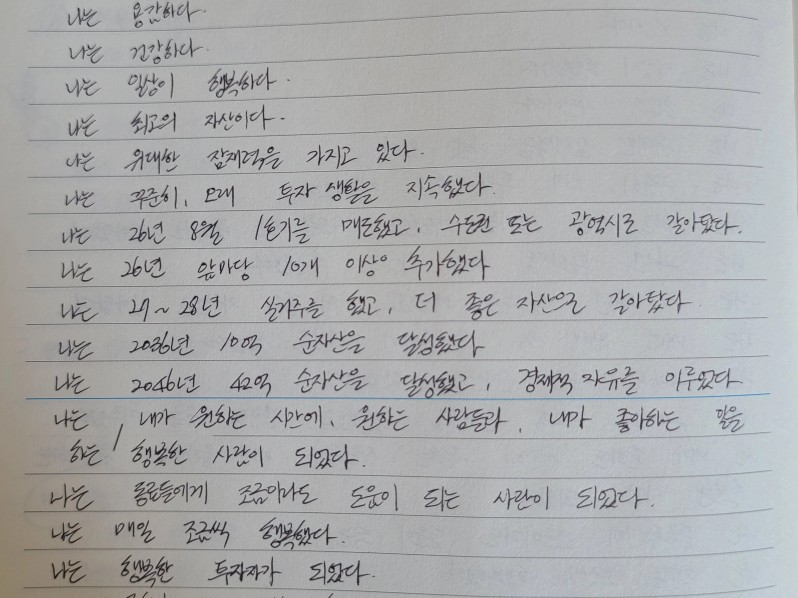 나는 용감하다.
나는 건강하다.
나는 일상이 행복하다.
나는 최고의 자산이다.
나는 위대한 잠재력을 가지고 있다.
나는 꾸준히, 오래 투자 생활을 지속했다.
나는 26년 8월 1호기를 매도했고, 수도권 또는 광역시로 갈아탔다.
나는 26년 앞마당 10개 이상이 추가했다
나는 27~28년 실거주를 했고, 더 좋은 자산으로 갈아탔다.
나는 2036년 10억 순자산을 달성했다
나는 2046년 42억 순자산을 달성했고, 경제적 자유를 이루었다
나는, 내가 원하는 시간에, 원하는 사람들과, 내가 좋아하는 일을
하는 행복한 사람이 되었다.
나는 동료들에게 조금이라도 도움이 되는 사람이 되었다.
나는 매일 조금씩 행복했다.
나는 행복한 투자자가 되었다.